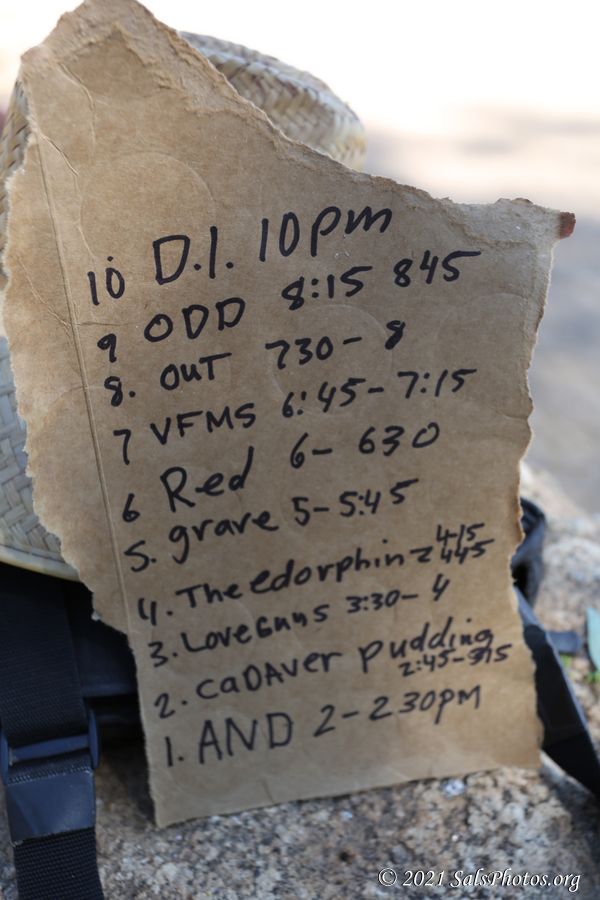 10 D.I. 10pm
9 ODD 8:15 845
8. OUT 730- 8
7 VFMS 6:45-7:15
6 Red 6- 630
5. grave 5-5:45
4. The edorphinz 415 445
3. Love Guns 3:30-4
2. CaDAVer Pudding 2:45-315
1. AND 2-230pm
© 2021 SalsPhotos.org